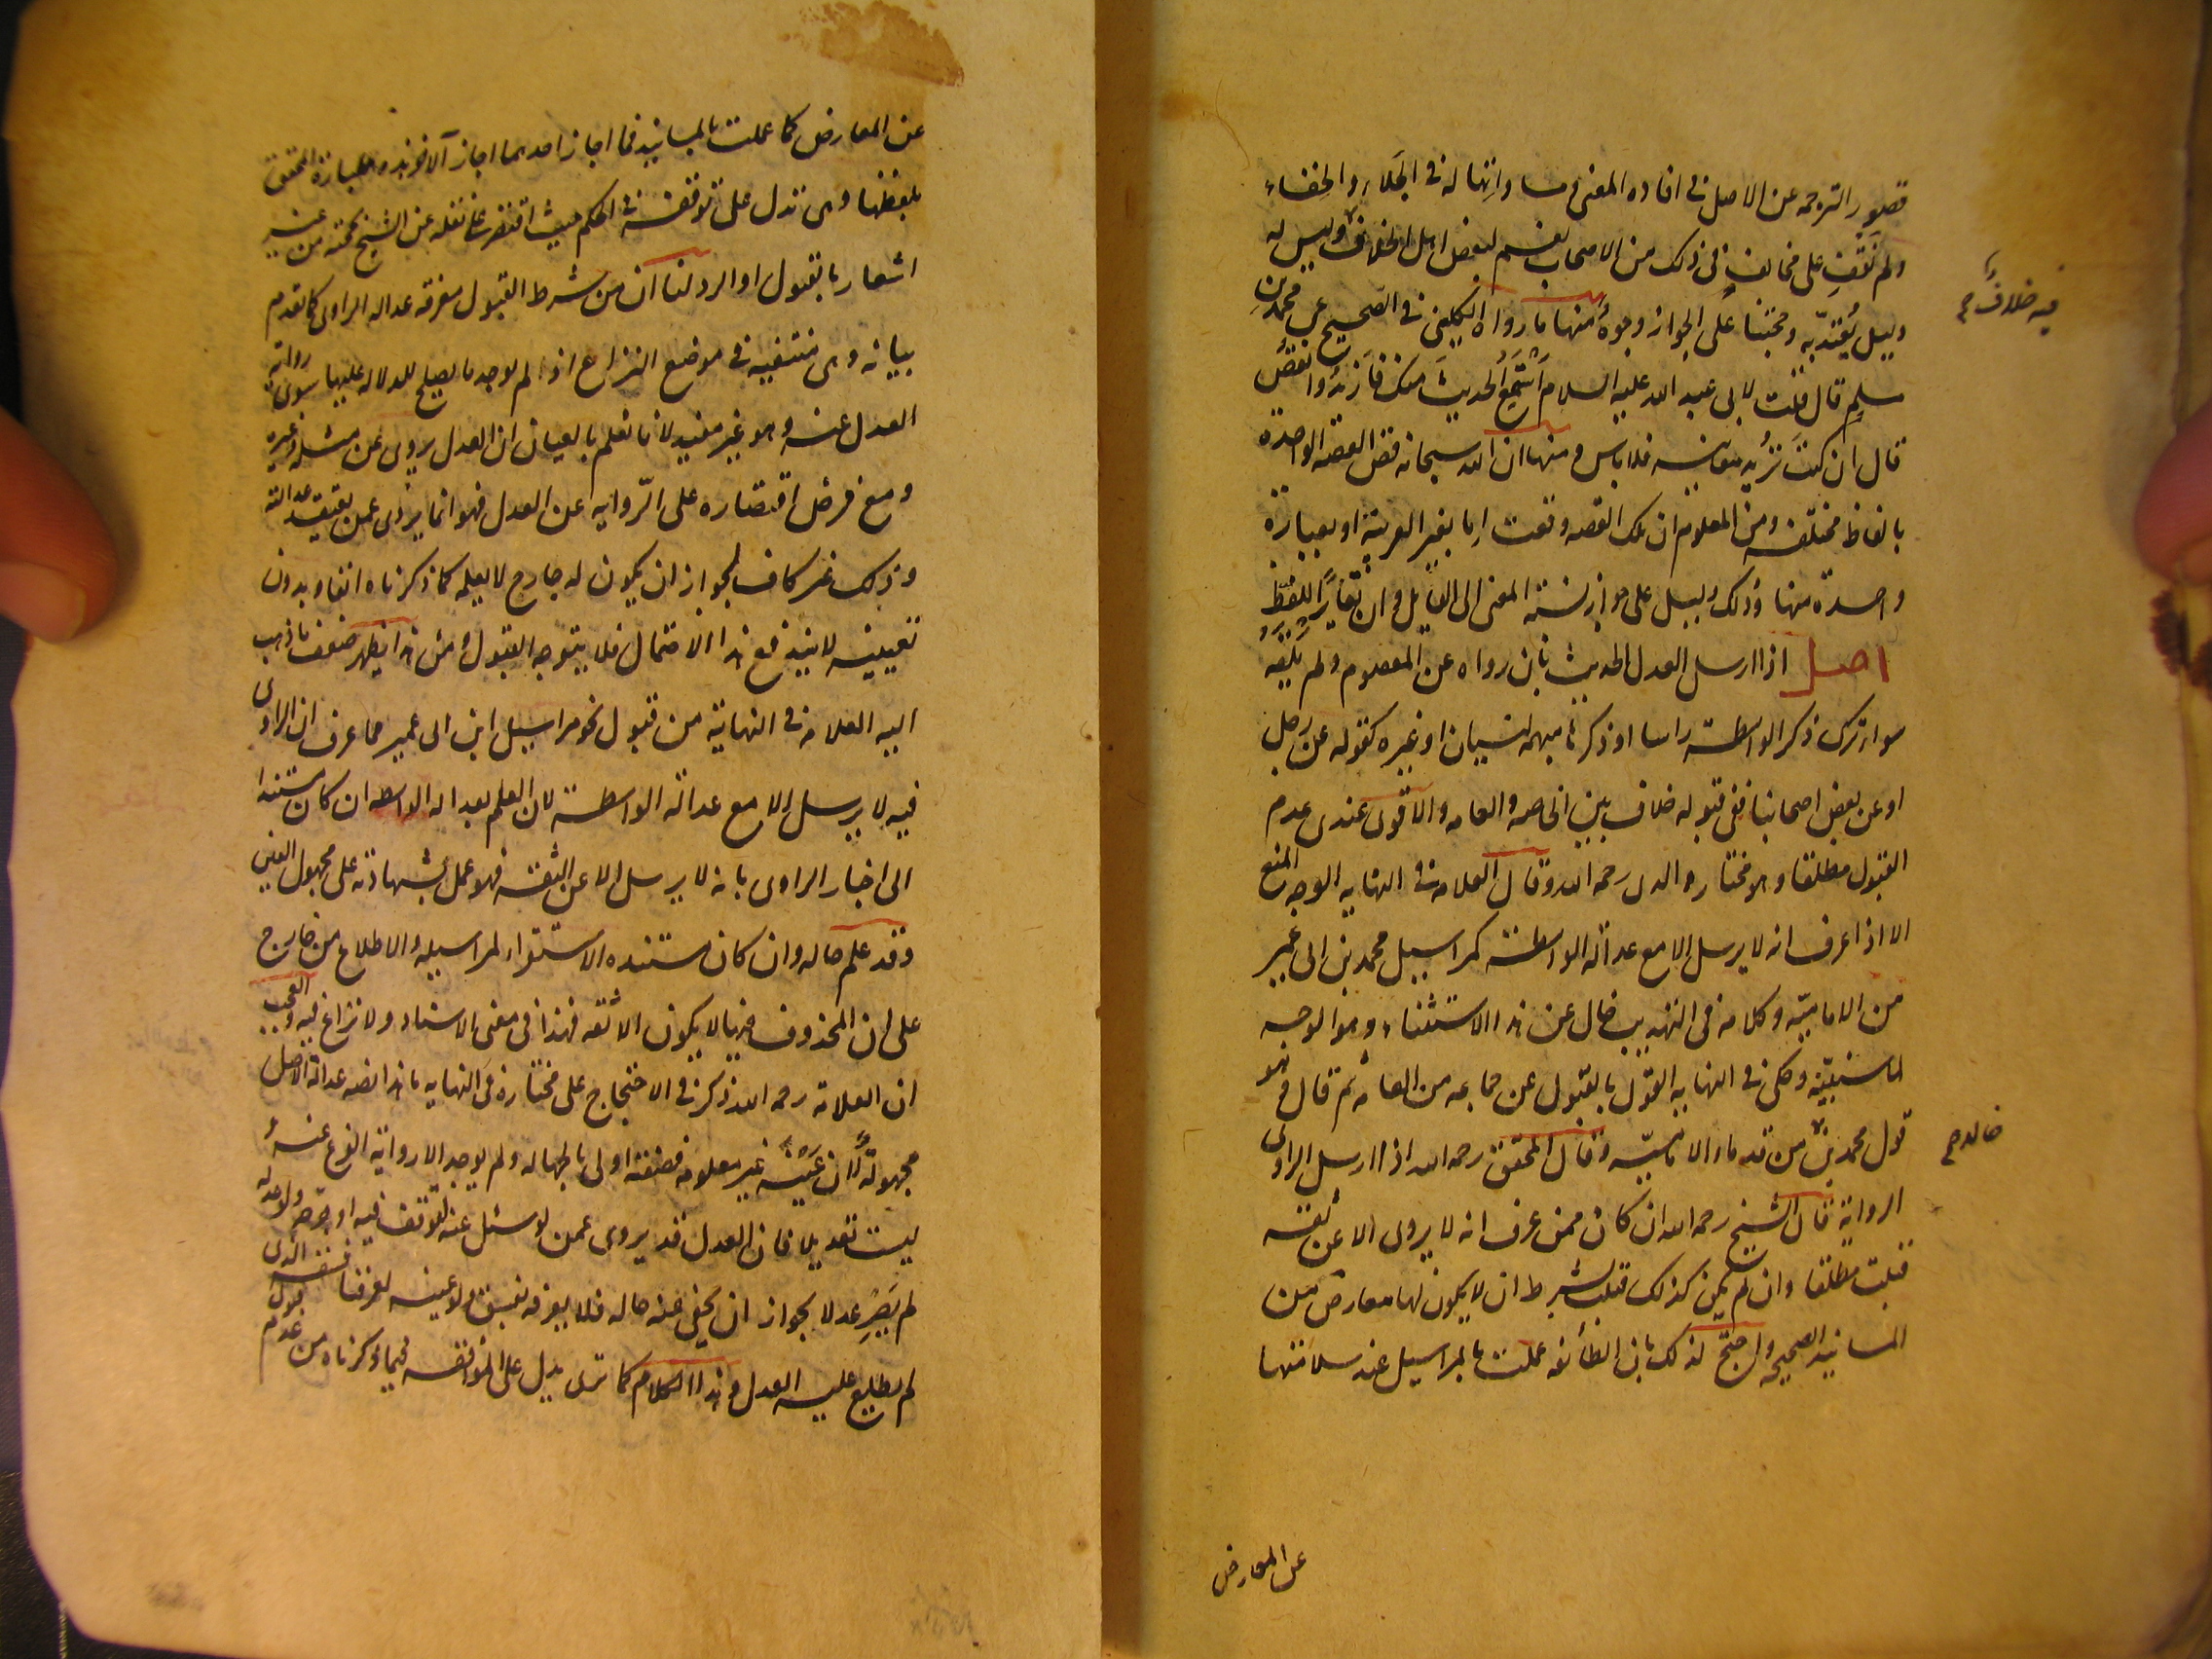 قصور الترجمه عن الاصل فى افاده المعنى ومساواتها له فى الجلاء والخفاء
ولم نقف على مخالف فى ذلك من الاصحاب نعم لبعض اهل الخلاف وليس له
فيه خلاف
دليل يعتد به وحجتنا على الجواز وجوه منها ما رواه الكلينى فى الصحيح عن محمد بن
مسلم قال قلت لابى عبد الله عليه السلام اسمع الحديث منك فازيد وانقص
قال ان كنت تريد معانيه فلا باس ومنها ان الله سبحانه قص القصة الواحدة
بالفاظ مختلفه ومن المعلوم ان تلك القصه وقعت اما بغير العربية او بعبارة
واحدة منها وذلك دليل على جواز نسبة المعنى الى القايل وان تغاير اللفظ
اصل اذا ارسل العدل الحديث بان رواه عن المعصوم ولم يلقه
سواء ترك ذكر الواسطة راسا او ذكرها مبهمه لنسيان او غيره كقوله عن رجل
او عن بعض اصحابنا ففى قبوله خلاف بين الخاصه والعامه والاقوى عندى عدم
القبول مطلقا وهو مختار والدى رحمه الله وقال العلامه فى النهايه الوجه المنع
الا اذا عرف انه لا يرسل الا مع عدالة الواسطة كمراسيل محمد بن ابى عمير
من الاماميّه وكلامه فى التهذيب خال عن هذا الاستثناء وهو الوجه
لما سنبيّنه وحكى فى النهايه القول بالقبول عن جماعه من العامه ثم قال وهو
قول محمد بن من قدماء الاماميّه وقال المحقق رحمه الله اذا ارسل الراوى
خالد
الرواية قال الشيخ رحمه الله ان كان ممن عرف انه لا يروى الا عن ثقه
قبلت مطلقا وان لم يكن كذلك قبلت بشرط ان لا يكون لها معارض من
المسانيد الصحيحه واحتج لذلك بان الطائفه عملت بالمراسيل عند سلامتها
عن المعارض
عن المعارض كما عملت بالمسانيد فما اجاز احدهما اجاز الاخر هذه عبارة المحقق
بلفظها وهى تدل على توقفه فى الحكم حيث اقتصر على نقله عن الشيخ بحجته من غير
اشعار بالقبول او الرد لنا ان من شرط القبول معرفه عداله الراوى كما تقدم
بيانه وهى منتفيه فى موضع النزاع اذ لم يوجد ما يصلح للدلاله عليها سوى رواية
العدل عنه وهو غير مفيد لانا نعلم بالعيان ان العدل يروى عن مثله وغيره
ومع فرض اقتصاره على الرّوايه عن العدل فهو انما يروى عمن يعتقد عدالته
وذلك غير كاف لجواز ان يكون له جارح لا يعلمه كما ذكرناه انفا وبدون
تعيينه لا يندفع هذا الاحتمال فلا يتوجه القبول ومن هذا يظهر ضعف ما ذهب
اليه العلامه فى النهاية من قبول نحو مراسيل ابن ابى عمير مما عرف ان الراوى
فيه لا يرسل الا مع عدالة الواسطة لان العلم بعداله الواسطه ان كان مستندا
الى اخبار الراوى بانه لا يرسل الا عن الثقه فهو عمل بشهادته على مجهول العين
وقد علم حاله وان كان مستنده الاستقراء لمراسيله والاطلاع من خارج
على ان المحذوف فيها لا يكون الا ثقه فهذا فى معنى الاسناد ولا نزاع فيه والعجب
ان العلامة رحمه الله ذكر فى الاحتجاج على مختاره فى النهايه ما هذا نصه عدالة الاصل
مجهولة لان عينه غير معلومه فصفته اولى بالجهاله ولم يوجد الا رواية الفرع عنه و
ليست تعديلا فان العدل قد يروى عمن لو سئل عنه لتوقف فيه او جرحه ولو عدله
لم يصر عدلا لجواز ان يخفى عنه حاله فلا يعرفه بفسق ولو عينه لعرفنا فسقه الذى
لم يطلع عليه العدل وهذا الكلام كما ترى يدل على الموافقه فيما ذكرناه من عدم قبول